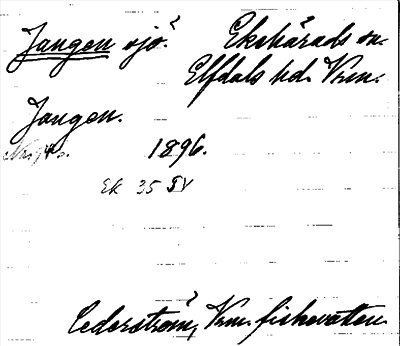 Jangen sjö? Ekshärads sn.
Elfdals hd. Vrm.
Jangen.
1896.
Ek 35 SV
Cederström, Vrm. fiskevatten